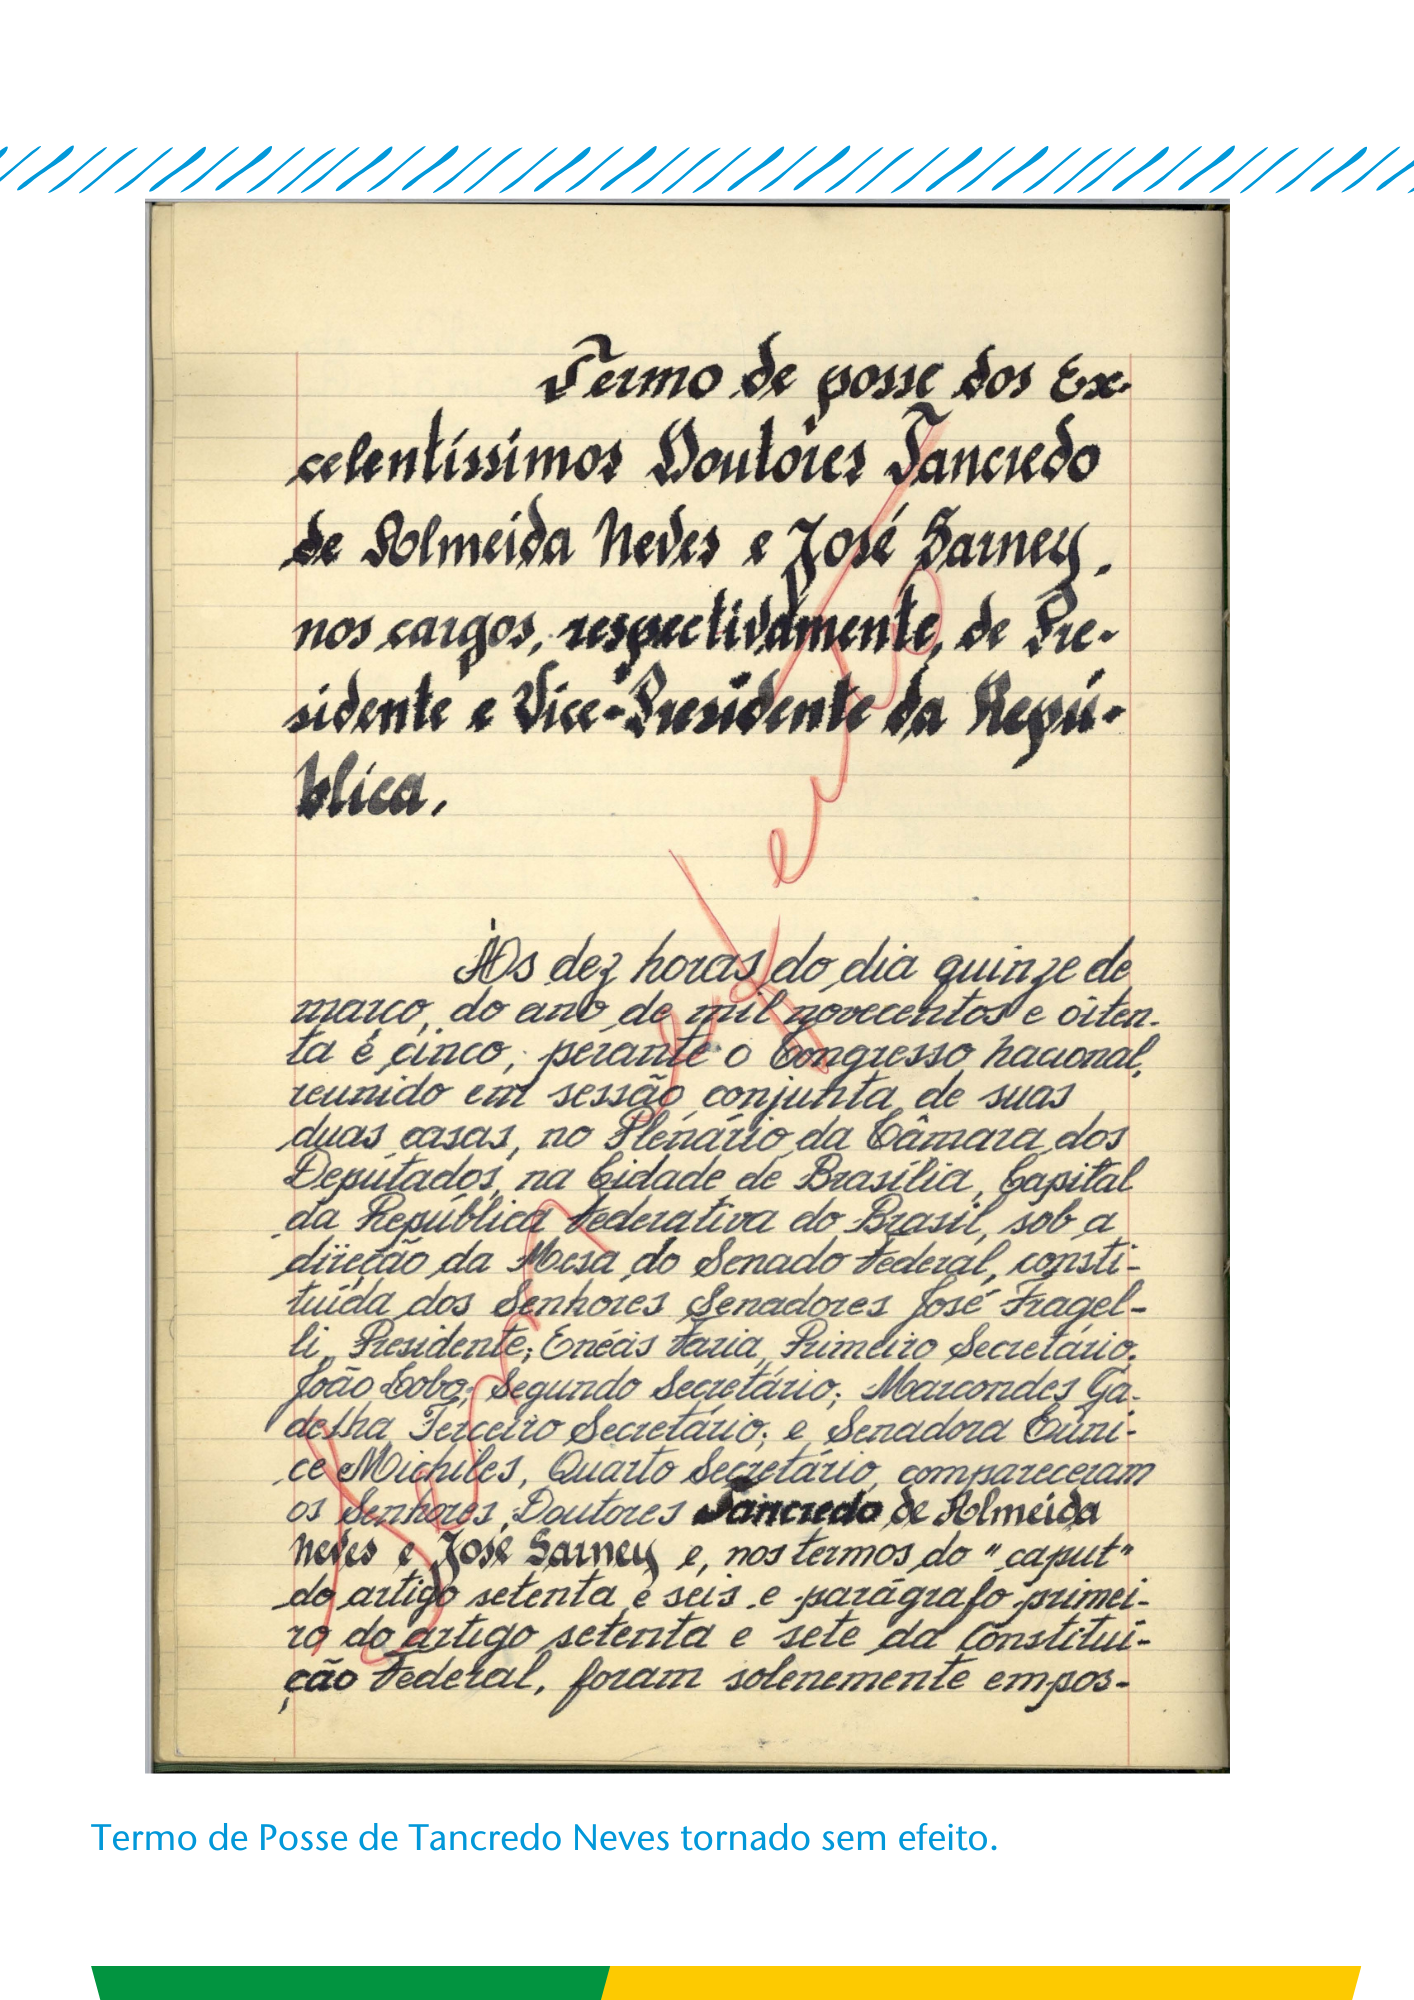 Termo de posse dos Ex-
celentíssimos Doutores Tancredo
de Almeida Neves e José Sarney,
nos cargos, respectivamente, de Pre-
sidente e Vice-Presidente da Repú-
blica.
Às dez horas do dia quinze de
março, do ano de mil novecentos e oiten-
ta e cinco, perante o Congresso Nacional,
reunido em sessão conjunta de suas
duas casas, no Plenário da Câmara dos
Deputados, na Cidade de Brasília, Capital
da República Federativa do Brasil, sob a
direção da Mesa do Senado Federal, consti-
tuída dos Senhores Senadores José Fragel-
li, Presidente; Enéas Faria, Primeiro Secretário;
João Lobo, Segundo Secretário; Marcondes Ga-
delha Terceiro Secretário; e Senadora Euni-
ce Michiles, Quarto Secretário, compareceram
os Senhores Doutores Tancredo de Almeida
Neves e José Sarney e, nos termos do "caput"
do artigo setenta e seis e parágrafo primei-
ro do artigo setenta e sete da Constitui-
ção Federal, foram solenemente empos-
Sem efeito
Termo de Posse de Tancredo Neves tornado sem efeito.